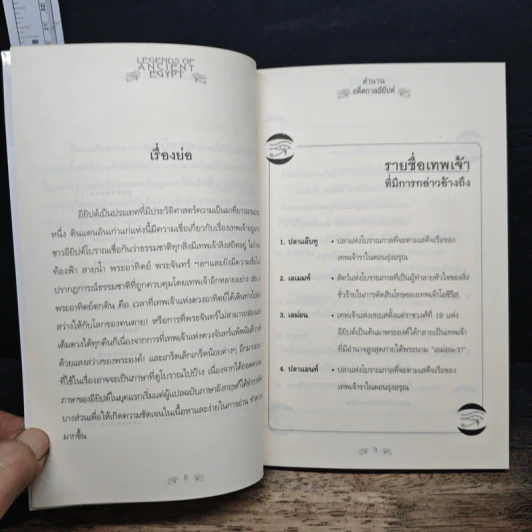 LEGENDS OF
ANCIENT
EGYPT
เรื่องย่อ
อียิปต์เป็นประเทศที่มีประวัติศาสตร์ความเป็นมาที่ยาวนาน
หนึ่ง ดินแดนอันเก่าแก่แห่งนี้มีความเชื่อเกี่ยวกับเรื่องเทพเจ้า
ชาวอียิปต์โบราณเชื่อกันว่าธรรมชาติทุกสิ่งมีเทพเจ้าสิงสถิตอยู่ ไม่ว่า
ท้องฟ้า สายน้ำ พระอาทิตย์ พระจันทร์ ฯลฯและยังมีความเชื่อ
ปรากฏการณ์ธรรมชาติที่ถูกควบคุมโดยเทพเจ้าอีกหลายอย่าง เช่น
พระอาทิตย์ตกดิน คือ เวลาที่เทพเจ้าแห่งดวงอาทิตย์ได้เดินทาง
สว่างให้กับโลกของคนตาย! หรือการที่พระจันทร์ไม่สามารถส่อง
เต็มดวงได้ทุกคืนก็เนื่องจากการที่เทพเจ้าแห่งดวงจันทร์แพ้พนัน
ด้วยแสงสว่างของพระองค์! และเกร็ดเล็กเกร็ดน้อยต่างๆ อีกมาก
ที่ใช้ในเรื่องอาจจะเป็นภาษาที่ดูโบราณไปบ้าง เนื่องจากได้ถอด
ภาษาของอียิปต์ในยุคแรกเริ่มแต่ผู้แปลฉบับภาษาอังกฤษก็ได้ทำการ
บางส่วนเพื่อให้เกิดความชัดเจนในเนื้อหาและง่ายในการอ่าน
มากขึ้น
8
ตำนาน
อดีตกาลอียิปต์
รายชื่อเทพเจ้า
ที่มีการกล่าวอ้างถึง
1. ปลาแอ๊บทู • ปลาแห่งโบราณกาลที่จะตามเสด็จเรือของ
เทพเจ้าราในตอนรุ่งอรุณ
2. เอเมมท์ • สัตว์แห่งโบราณกาลที่เป็นผู้ทำลายหัวใจของสิ่ง
ชั่วร้ายในการตัดสินโทษของเทพเจ้าโอซีริส
3. เอม่อน • เทพเจ้าแห่งเธบสตั้งแต่ราชวงศ์ที่ 18 แห่ง
อียิปต์เป็นต้นมาพระองค์ได้กลายเป็นเทพเจ้า
ที่มีอำนาจสูงสุดภายใต้พระนาม "เอม่อน-รา"
4. ปลาแอนท์ • ปลาแห่งโบราณกาลที่จะตามเสด็จเรือของ
เทพเจ้าราในตอนรุ่งอรุณ
9